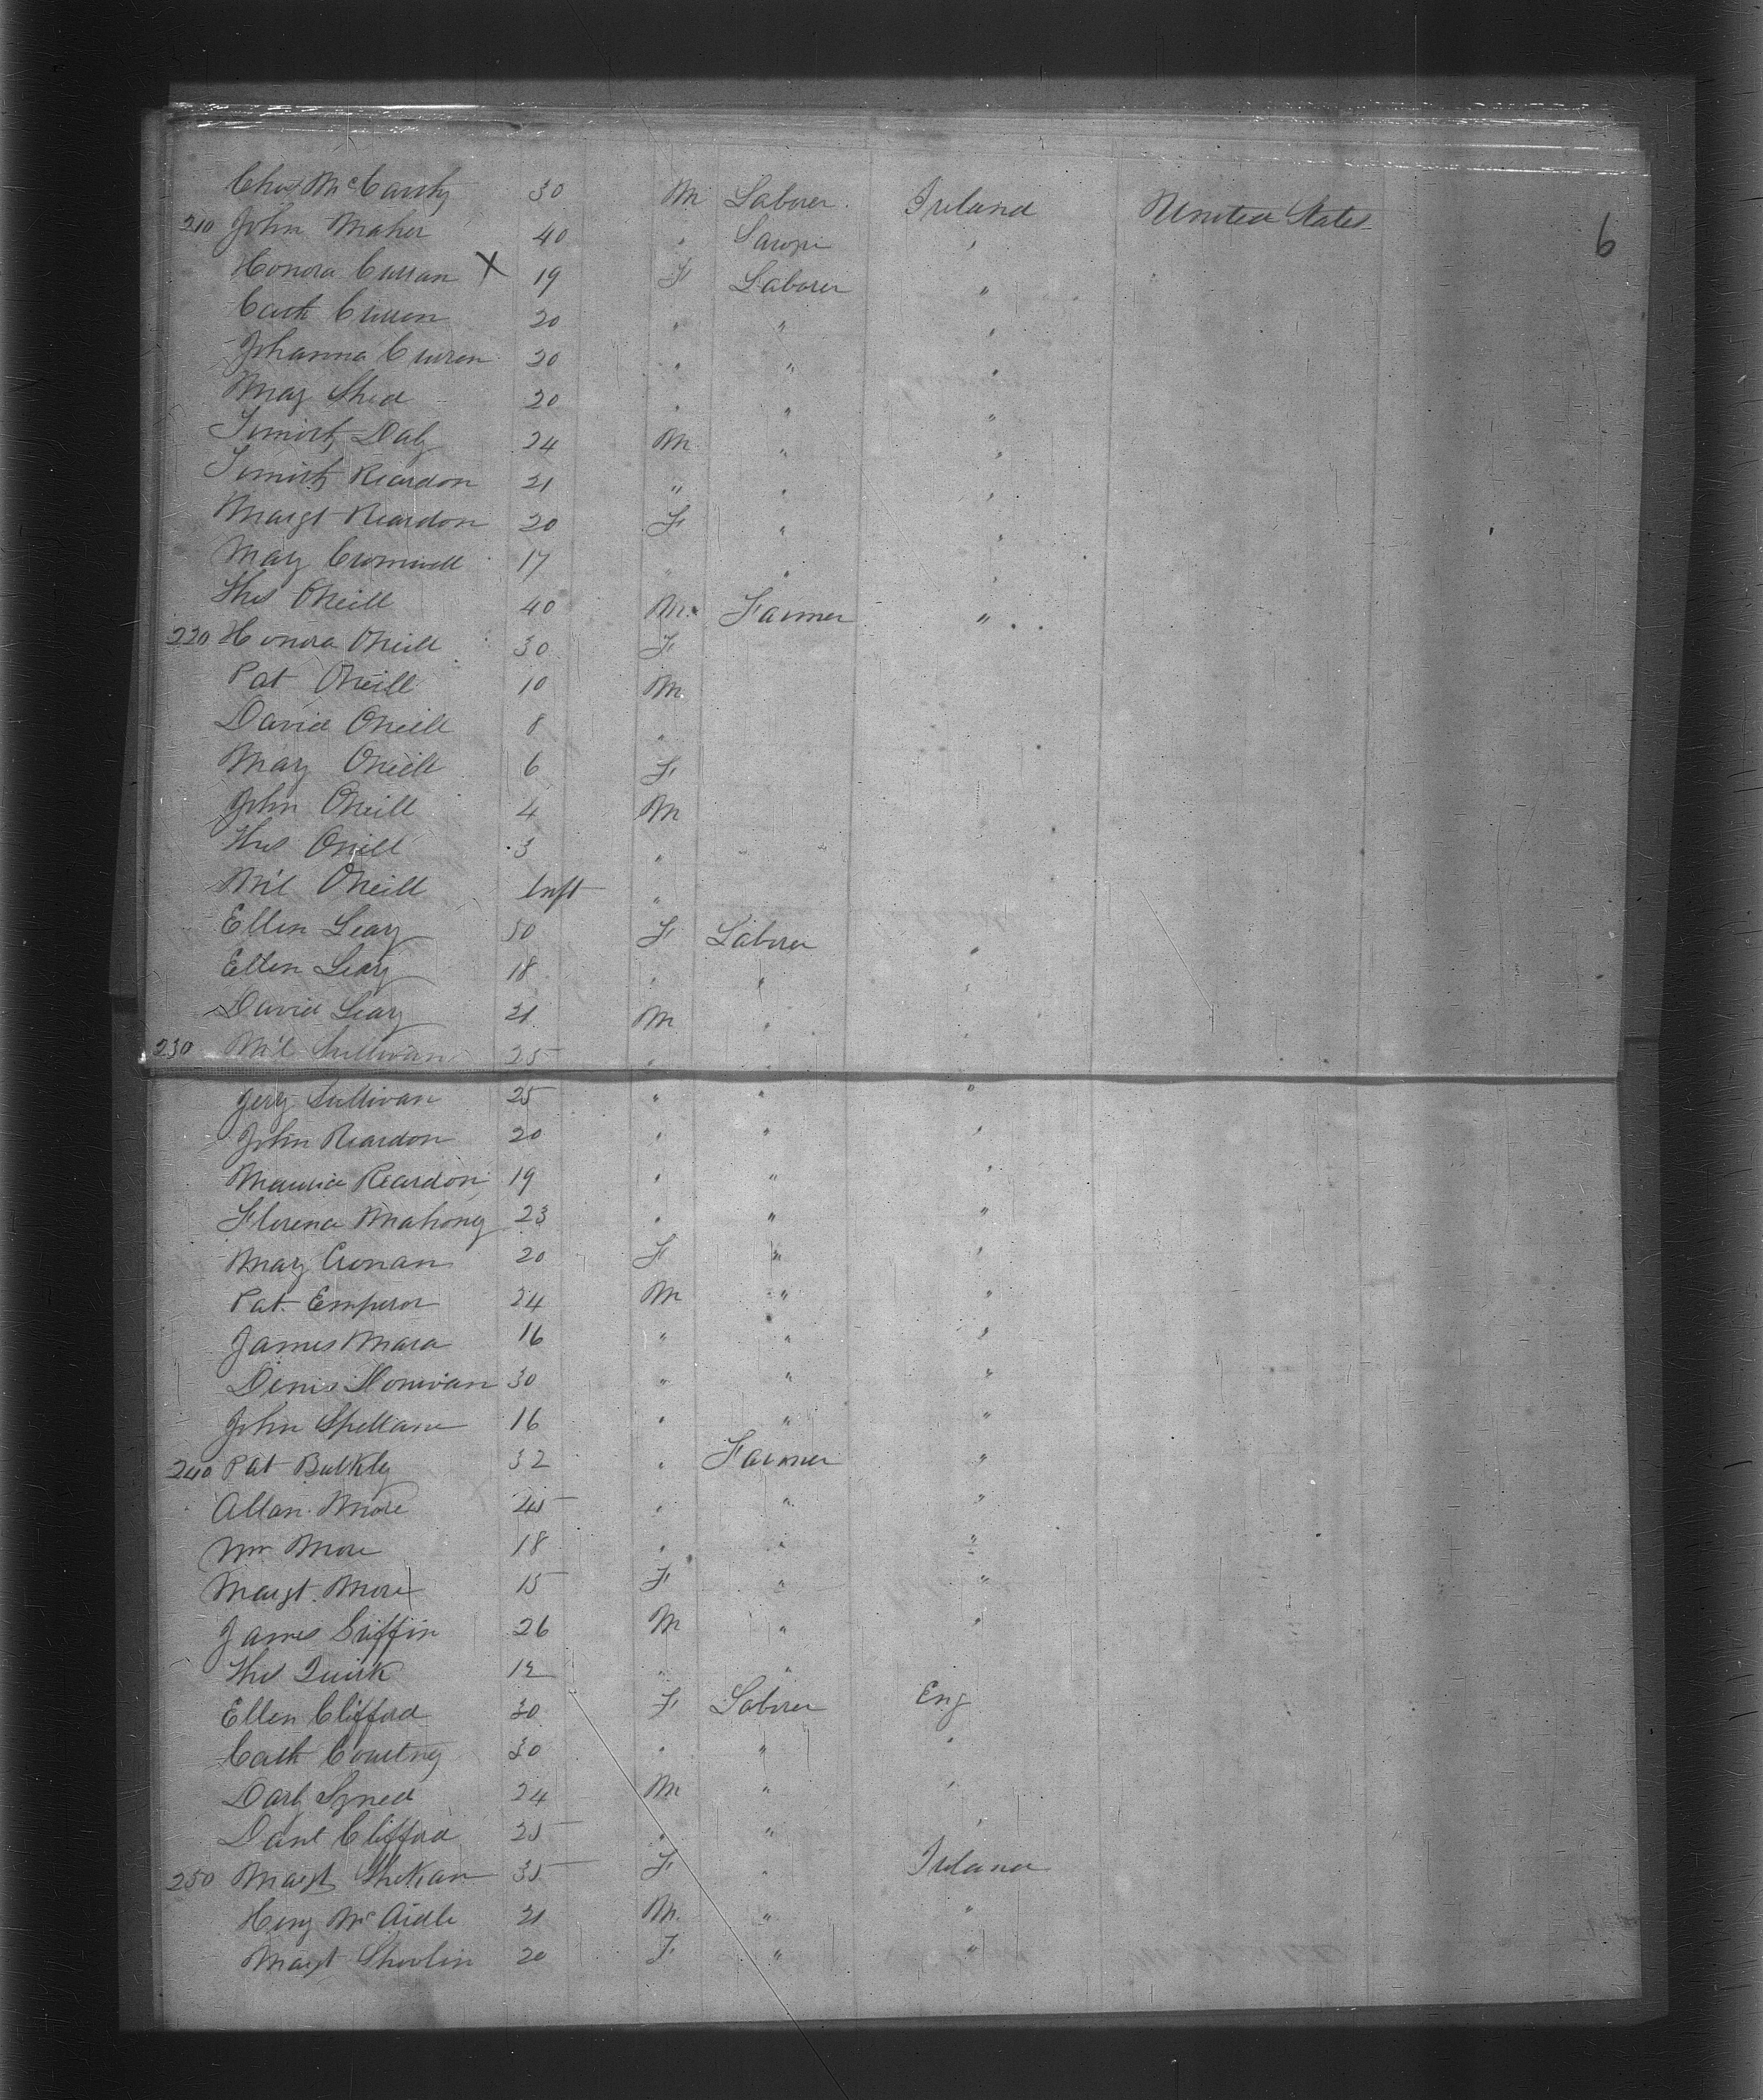 Chas McCarthy 30 M Laborer Ireland United States
6
210 John Maher 40 "
Honora Curran X 19 F Laborer "
Cath Curran 20 " " "
Johanna Curran 20 " " "
Mary Shea 20 " " "
Timothy Daly 24 M " "
Timothy Reardon 21 " " "
Margt Reardon 20 F " "
Mary Cromwell 17 " " "
Thos ONeill 40 M. Farmer "
220 Honora ONeill 30 F
Pat ONeill 10 M
David ONeill 8 "
Mary ONeill 6 F
John ONeill 4 M
Thos ONeill 3 "
Mil ONeill Inft "
Ellen Leary 50 F Laborer "
Ellen Leary 18 " " "
David Leary 21 M " "
230 Mil Sullivan 25 " " "
Jery Sullivan 25 " " "
John Reardon 20 " " "
Maurice Reardon 19 " " "
Florence Mahony 23 " " "
Mary Cronan 20 F " "
Pat Emperor 24 M " "
James Mara 16 " " "
Denis Donivan 30 " " "
John Spellane 16 " " "
240 Pat Bulkly 32 " Farmer "
Allan More 45 " " "
Wm More 18 " " "
Margt More 15 F " "
James Griffin 26 M " "
Thos Quirk 12 " "
Ellen Clifford 30 F Laborer Eng
Cath Courtny 30 " " "
Darby 24 M " "
Danl Clifford 25 " " "
250 Margt 35 F " Ireland
Heny McAidle 21 M. " "
Margt Shovlin 20 F " "